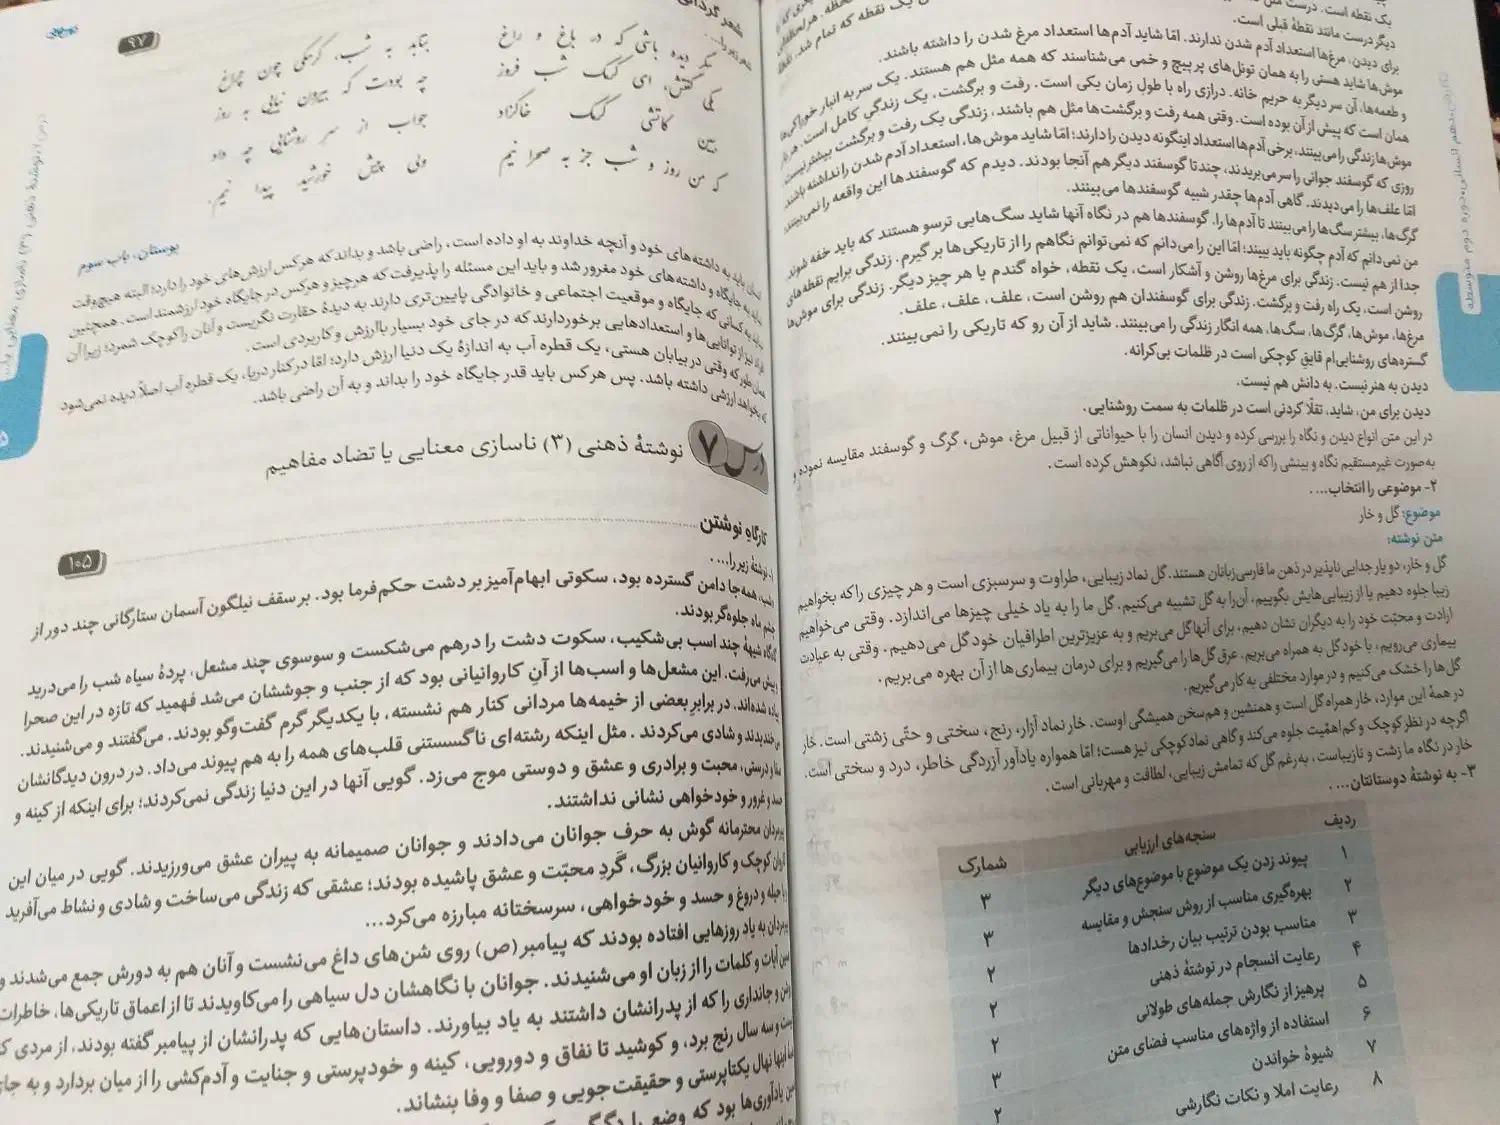 یک نقطه است. درست
دیگر درست مانند نقطهٔ قبلی است.
برای دیدن، مرغ‌ها استعداد آدم شدن ندارند. امّا شاید آدم‌ها استعداد مرغ شدن را داشته باشند.
موش‌ها شاید هستی را به همان تونل‌های پر پیچ و خمی می‌شناسند که همه مثل هم هستند. یک سر به انبار خوراکی‌ها
و طعمه‌ها، آن سر دیگر به حریم خانه. درازی راه با طول زمان یکی است. رفت و برگشت. یک زندگیِ کامل است. هر بار
همان است که پیش از آن بوده است. وقتی همه رفت و برگشت‌ها مثل هم باشند، زندگی یک رفت و برگشت بیشتر نیست.
موش‌ها زندگی را می‌بینند، برخی آدم‌ها استعداد اینگونه دیدن را دارند؛ امّا شاید موش‌ها، استعداد آدم شدن را نداشته باشند.
روزی که گوسفند جوانی را سر می‌بریدند، چند تا گوسفند دیگر هم آنجا بودند. دیدم که گوسفندها این واقعه را نمی‌بینند
امّا علف‌ها را می‌دیدند. گاهی آدم‌ها چقدر شبیه گوسفندها می‌بینند.
گرگ‌ها، بیشتر سگ‌ها را می‌بینند تا آدم‌ها را. گوسفندها هم در نگاه آنها شاید سگ‌هایی ترسو هستند که باید خفه شوند
من نمی‌دانم که آدم چگونه باید ببیند؛ امّا این را می‌دانم که نمی‌توانم نگاهم را از تاریکی‌ها بر گیرم. زندگی برایم نقطه‌های
جدا از هم نیست. زندگی برای مرغ‌ها روشن و آشکار است، یک نقطه، خواه گندم یا هر چیز دیگر. زندگی برای موش‌ها
روشن است، یک راه رفت و برگشت. زندگی برای گوسفندان هم روشن است، علف، علف، علف.
مرغ‌ها، موش‌ها، گرگ‌ها، سگ‌ها، همه انگار زندگی را می‌بینند. شاید از آن رو که تاریکی را نمی‌بینند.
گستره‌های روشنایی‌ام قایقِ کوچکی است در ظلمات بی‌کرانه.
دیدن به هنر نیست. به دانش هم نیست.
دیدن برای من، شاید، تقلّا کردنی است در ظلمات به سمت روشنایی.
در این متن انواع دیدن و نگاه را بررسی کرده و دیدن انسان را با حیواناتی از قبیل مرغ، موش، گرگ و گوسفند مقایسه نموده و
به‌صورت غیرمستقیم نگاه و بینشی را که از روی آگاهی نباشد، نکوهش کرده است.
۲- موضوعی را انتخاب....
موضوع: گل و خار
متن نوشته:
گل و خار، دو یار جدایی‌ناپذیر در ذهن ما فارسی‌زبانان هستند. گل نماد زیبایی، طراوت و سرسبزی است و هر چیزی را که بخواهیم
زیبا جلوه دهیم یا از زیبایی‌هایش بگوییم، آن را به گل تشبیه می‌کنیم. گل ما را به یاد خیلی چیزها می‌اندازد. وقتی می‌خواهیم
ارادت و محبّت خود را به دیگران نشان دهیم، برای آنها گل می‌بریم و به عزیزترین اطرافیان خود گل می‌دهیم. وقتی به عیادت
بیماری می‌رویم، با خود گل به همراه می‌بریم. عرق گل‌ها را می‌گیریم و برای درمان بیماری‌ها از آن بهره می‌بریم.
گل‌ها را خشک می‌کنیم و در موارد مختلفی به کار می‌گیریم.
در همهٔ این موارد، خار همراه گل است و همنشین و هم‌سخن همیشگی اوست. خار نماد آزار، رنج، سختی و حتّی زشتی است. خار
اگرچه در نظر کوچک و کم‌اهمّیت جلوه می‌کند و گاهی نماد کوچکی نیز هست؛ امّا همواره یادآور آزردگی خاطر، درد و سختی است.
خار در نگاه ما زشت و نازیباست. به‌رغم گل که تمامش زیبایی، لطافت و مهربانی است.
۳- به نوشتهٔ دوستانتان....
ردیف سنجه‌های ارزیابی شمارک
۱ پیوند زدن یک موضوع با موضوع‌های دیگر ۳
۲ بهره‌گیری مناسب از روش سنجش و مقایسه ۳
۳ مناسب بودن ترتیب بیان رخدادها ۲
۴ رعایت انسجام در نوشتهٔ ذهنی ۲
۵ پرهیز از نگارش جمله‌های طولانی ۲
۶ استفاده از واژه‌های مناسب فضای متن ۳
۷ شیوهٔ خواندن ۲
۸ رعایت املا و نکات نگارشی
نگارش دهم انسانی
دوره دوم متوسطه
شعر گردانی
۹۷
شعر زیر را....
مگر دیده باشی که در باغ و راغ بتابد به شب، کرمکی چون چراغ
یکی گفتش، ای کرمک شب فروز چه بودت که بیرون نیایی به روز
ببین کاتشی کرمک خاکزاد جواب از سر روشنایی چه داد
که من روز و شب جز به صحرا نیم ولی پیش خورشید پیدا نیم.
بوستان، باب سوم
انسان باید به داشته‌های خود و آنچه خداوند به او داده است، راضی باشد و بداند که هرکس ارزش‌های خود را دارد؛ البته هیچ‌وقت
نباید به جایگاه و داشته‌های خود مغرور شد و باید این مسئله را پذیرفت که هر چیز و هر کس در جایگاه خود ارزشمند است. همچنین
نباید به کسانی که جایگاه و موقعیت اجتماعی و خانوادگی پایین‌تری دارند به دیدهٔ حقارت نگریست و آنان را کوچک شمرد؛ زیرا آن
افراد نیز از توانایی‌ها و استعدادهایی برخوردارند که در جای خود بسیار باارزش و کاربردی است.
همان طور که وقتی در بیابان هستی، یک قطره آب به اندازهٔ یک دنیا ارزش دارد؛ امّا در کنار دریا، یک قطره آب اصلاً دیده نمی‌شود
که بخواهد ارزشی داشته باشد. پس هر کس باید قدر جایگاه خود را بداند و به آن راضی باشد.
درس ۷ نوشتهٔ ذهنی (۳) ناسازی معنایی یا تضاد مفاهیم
کارگاهِ نوشتن
۱۰۵
۱- نوشتهٔ زیر را....
شب، همه‌جا دامن گسترده بود، سکوتی ابهام‌آمیز بر دشت حکم‌فرما بود. بر سقف نیلگون آسمان ستارگانی چند دور از
چشم ماه جلوه‌گر بودند.
گاه‌گاه شیههٔ چند اسب بی‌شکیب، سکوت دشت را درهم می‌شکست و سوسوی چند مشعل، پردهٔ سیاه شب را می‌درید
و پیش می‌رفت. این مشعل‌ها و اسب‌ها از آنِ کاروانیانی بود که از جنب و جوششان می‌شد فهمید که تازه در این صحرا
پیاده شده‌اند. در برابرِ بعضی از خیمه‌ها مردانی کنار هم نشسته، با یکدیگر گرم گفت‌وگو بودند. می‌گفتند و می‌شنیدند.
می‌خندیدند و شادی می‌کردند. مثل اینکه رشته‌ای ناگسستنی قلب‌های همه را به هم پیوند می‌داد. در درون دیدگانشان
صفا و درستی، محبت و برادری و عشق و دوستی موج می‌زد. گویی آنها در این دنیا زندگی نمی‌کردند؛ برای اینکه از کینه و
حسد و غرور و خودخواهی نشانی نداشتند.
پیرمردان محترمانه گوش به حرف جوانان می‌دادند و جوانان صمیمانه به پیران عشق می‌ورزیدند. گویی در میان این
کاروان کوچک و کاروانیان بزرگ، گَردِ محبّت و عشق پاشیده بودند؛ عشقی که زندگی می‌ساخت و شادی و نشاط می‌آفرید
و با حیله و دروغ و حسد و خودخواهی، سرسختانه مبارزه می‌کرد...
پیرمردان به یاد روزهایی افتاده بودند که پیامبر (ص) روی شن‌های داغ می‌نشست و آنان هم به دورش جمع می‌شدند و
آیات و کلمات را از زبان او می‌شنیدند. جوانان با نگاهشان دل سیاهی را می‌کاویدند تا از اعماق تاریکی‌ها، خاطرات
و جانداری را که از پدرانشان داشتند به یاد بیاورند. داستان‌هایی که پدرانشان از پیامبر گفته بودند، از مردی که
بیست و سه سال رنج برد، و کوشید تا نفاق و دورویی، کینه و خودپرستی و جنایت و آدم‌کشی را از میان بردارد و به جای
اینها نهال یکتاپرستی و حقیقت‌جویی و صفا و وفا بنشاند.
یادآوری‌ها بود که وضع